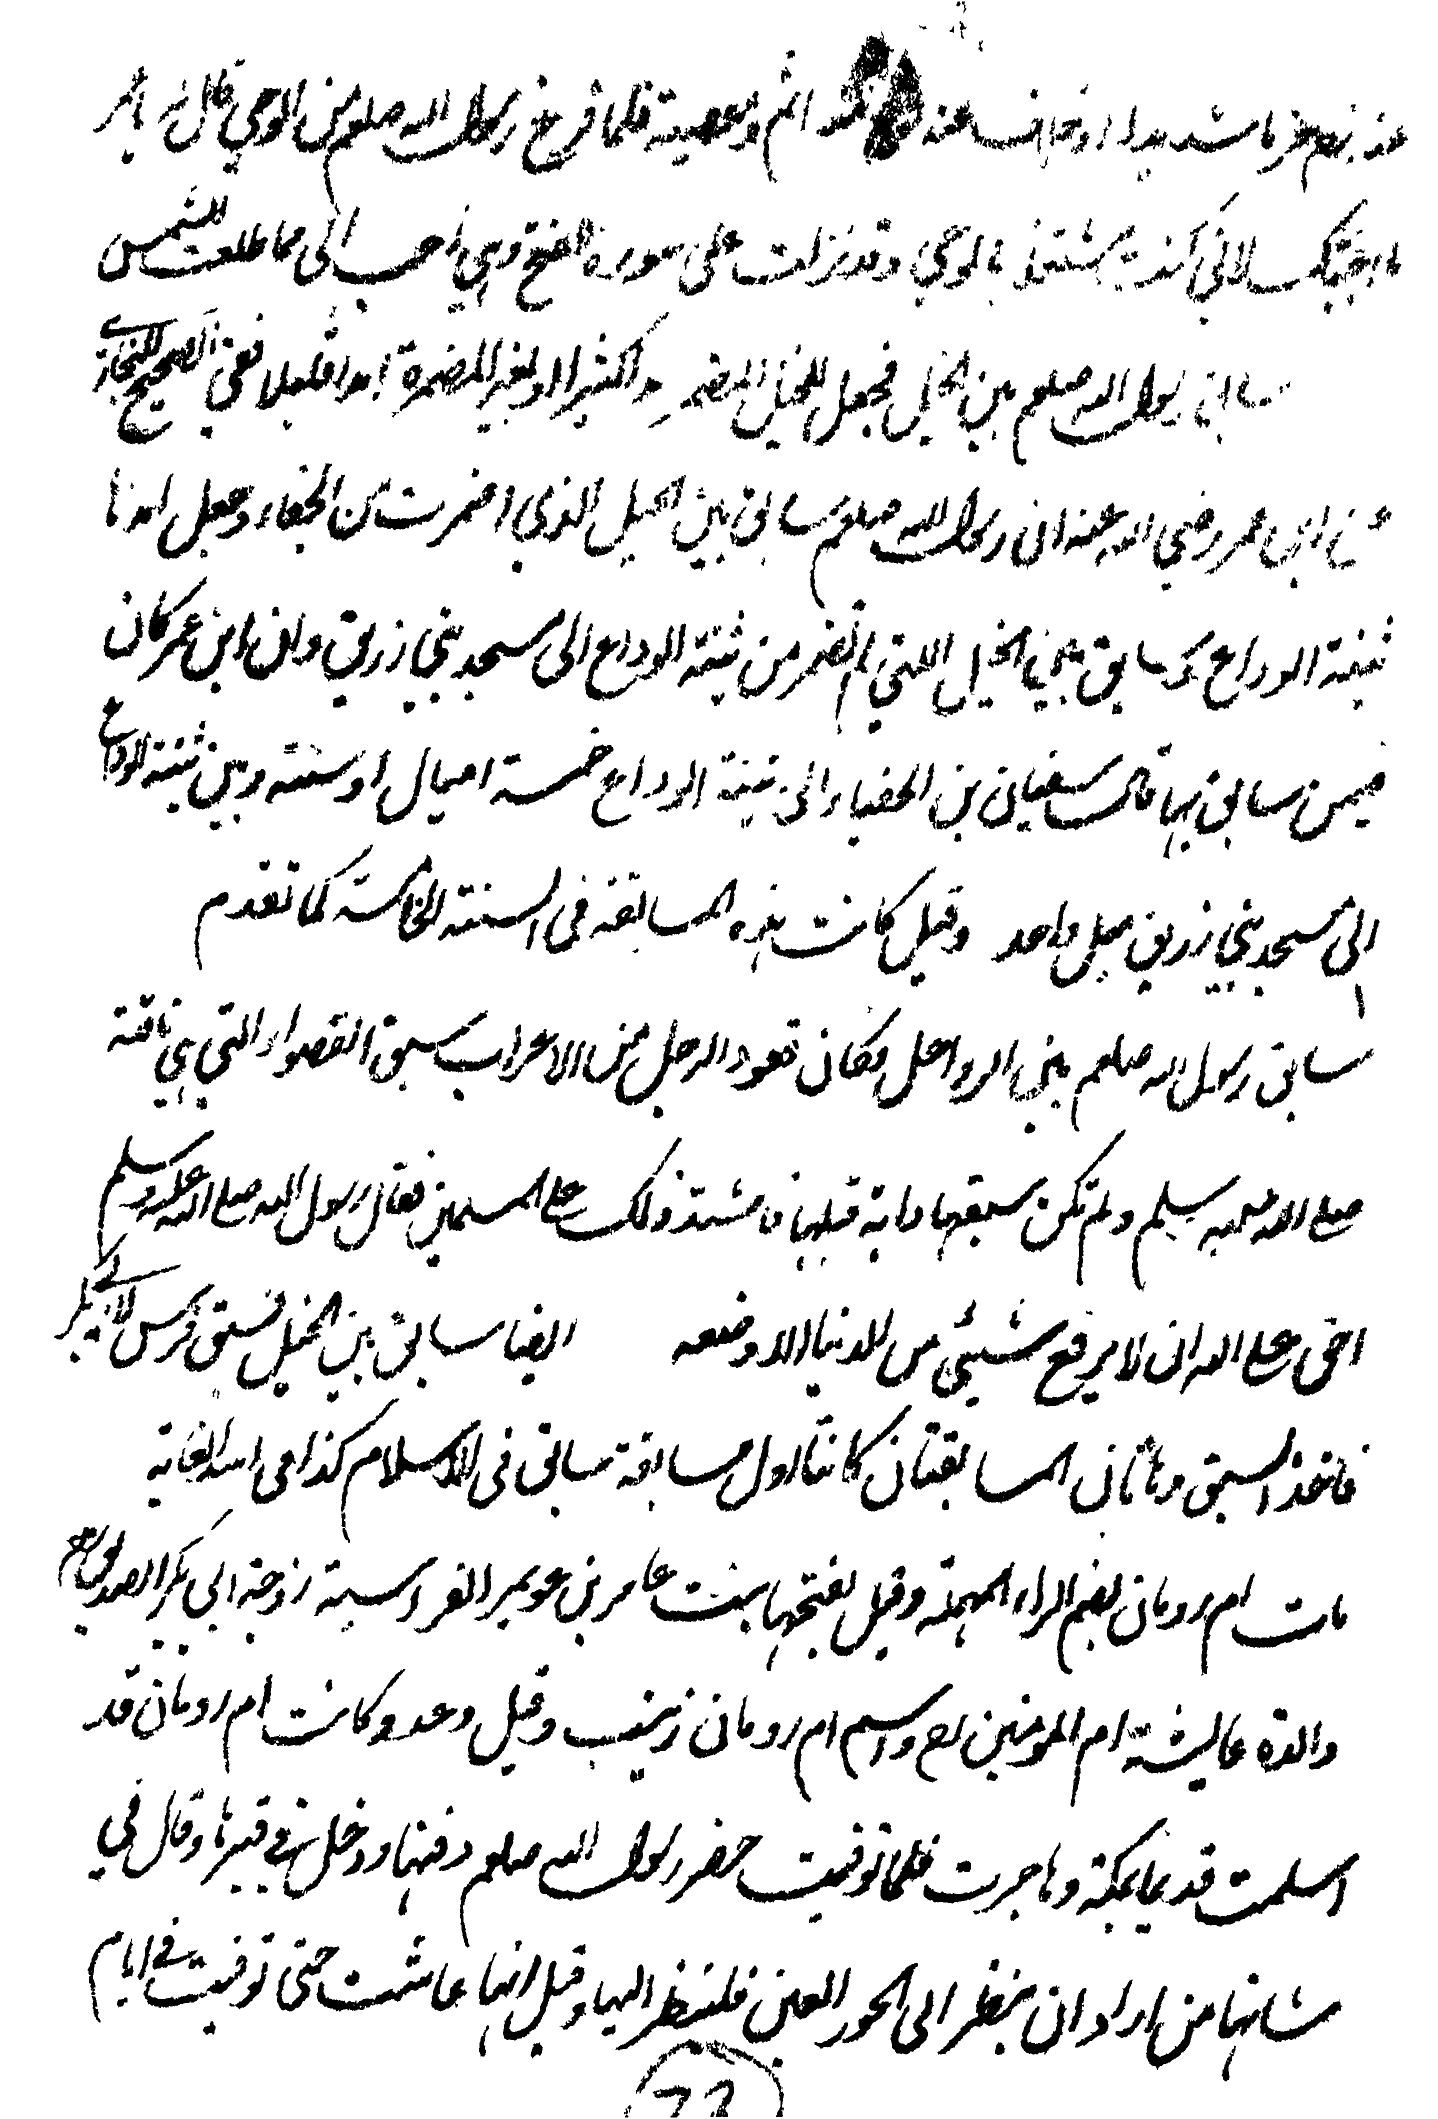 حزنا شديدا وخاف عنه اثم ومعصية فلما فرغ رسول الله صلعم من الوحي قال له يا عمر
ما اجبتك لاني كنت مشتغلا بالوحي وقد نزلت على سورة الفتح وهي احب الى مما طلعت الشمس
سابق رسول الله صلعم بين الخيل فجعل للخيل المضمرة امدا كثيرا ولغير المضمرة امدا قليلا ففي الصحيح للبخاري
عن ابن عمر رضي الله عنه ان رسول الله صلعم سابق بين الخيل الذي اضمرت من الحفياء وجعل امدها
ثنية الوداع وسابق بين الخيل التي لم تضمر من ثنية الوداع الى مسجد بني زريق وان ابن عمر كان
فيمن سابق بها قال سفيان بن الحفياء الى ثنية الوداع خمسة اميال او ستة وبين ثنية الوداع
الى مسجد بني زريق ميل واحد وقيل كانت هذه المسابقة في السنة الخامسة كما تقدم
سابق رسول الله صلعم بين الرواحل فكان قعود الرجل من الاعراب سبق القصواء التي هي ناقة
صلى الله عليه وسلم ولم تكن سبقها دابة قبلها فاشتد ذلك على المسلمين فقال رسول الله صلى الله عليه وسلم
احق على الله ان لا يرفع شيئ من الدنيا الا وضعه ايضا سابق بين الخيل فسبق فرس لابي بكر
فاخذ السبق وهاتان المسابقتان كانتا اول مسابقة سابق في الاسلام كذا في اسد الغابة
ماتت ام رومان بضم الراء المهملة وقيل بفتحها بنت عامر بن عويمر الفراسية زوجة ابي بكر الصديق رض
والدة عايشة ام المومنين رض واسم ام رومان زينب وقيل دعد وكانت ام رومان قد
اسلمت قديما بمكة وهاجرت فلما توفيت حضر رسول الله صلعم دفنها ودخل في قبرها وقال في
شانها من اراد ان ينظر الى الحور العين فلينظر اليها وقيل انها عاشت حتى توفيت في ايام